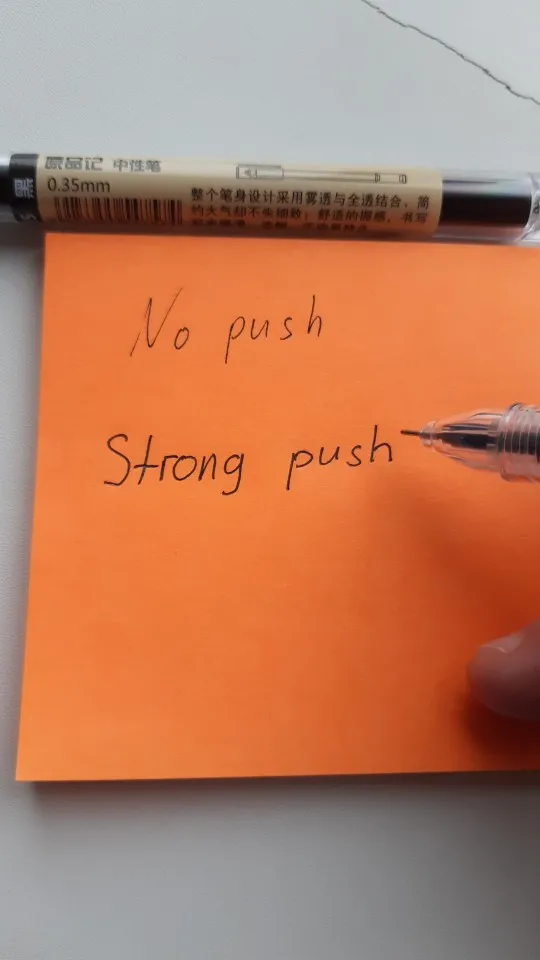 原品记 中性笔
黑
0.35mm
整个笔身设计采用雾透与全透结合、简
约大气却不失细致；舒适的握感，书写
No push
Strong push